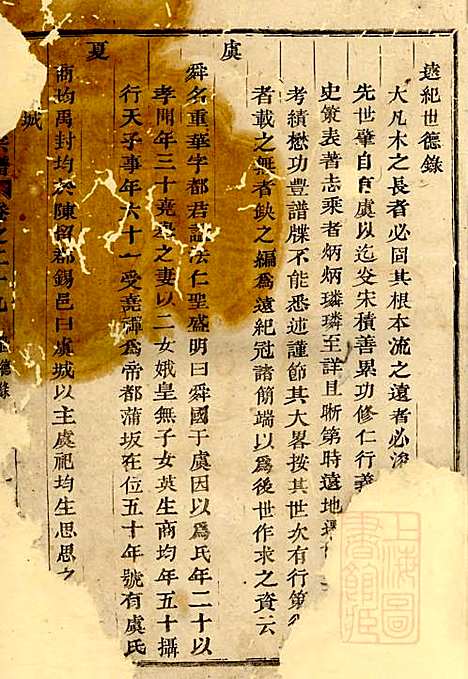 遠紀世德錄
大凡木之長者必固其根本流之遠者必濬
先世肇自有虞以迄宋積善累功修仁行義
史策表著志乘者炳炳璘璘至詳且晰第時遠地
考績懋功豐譜牒不能悉述謹節其大畧按其世次有行第
者載之無者缺之編為遠紀冠諸簡端以為後世作求之資云
虞
舜名重華字都君謚法仁聖盛明曰舜國于虞因以為氏年二十以
孝聞年三十堯之妻以二女娥皇無子女英生商均年五十攝
行天子事年六十一受堯禪為帝都蒲坂在位五十年號有虞氏
夏
商均禹封均於陳留郡錫邑曰虞城以主虞祀均生思思之
城
卷之二十九
德錄
上海圖書館藏